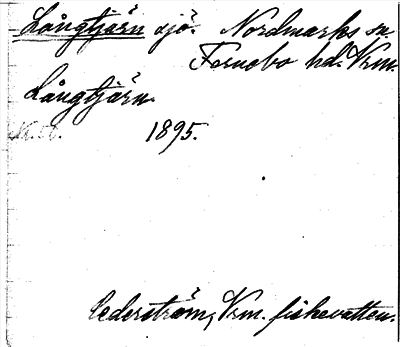 Långtjärn sjö. Nordmarks sn.
Fernebo hd. Vrm.
Långtjärn.
1895.
Cederström, Vrm. fiskevatten.